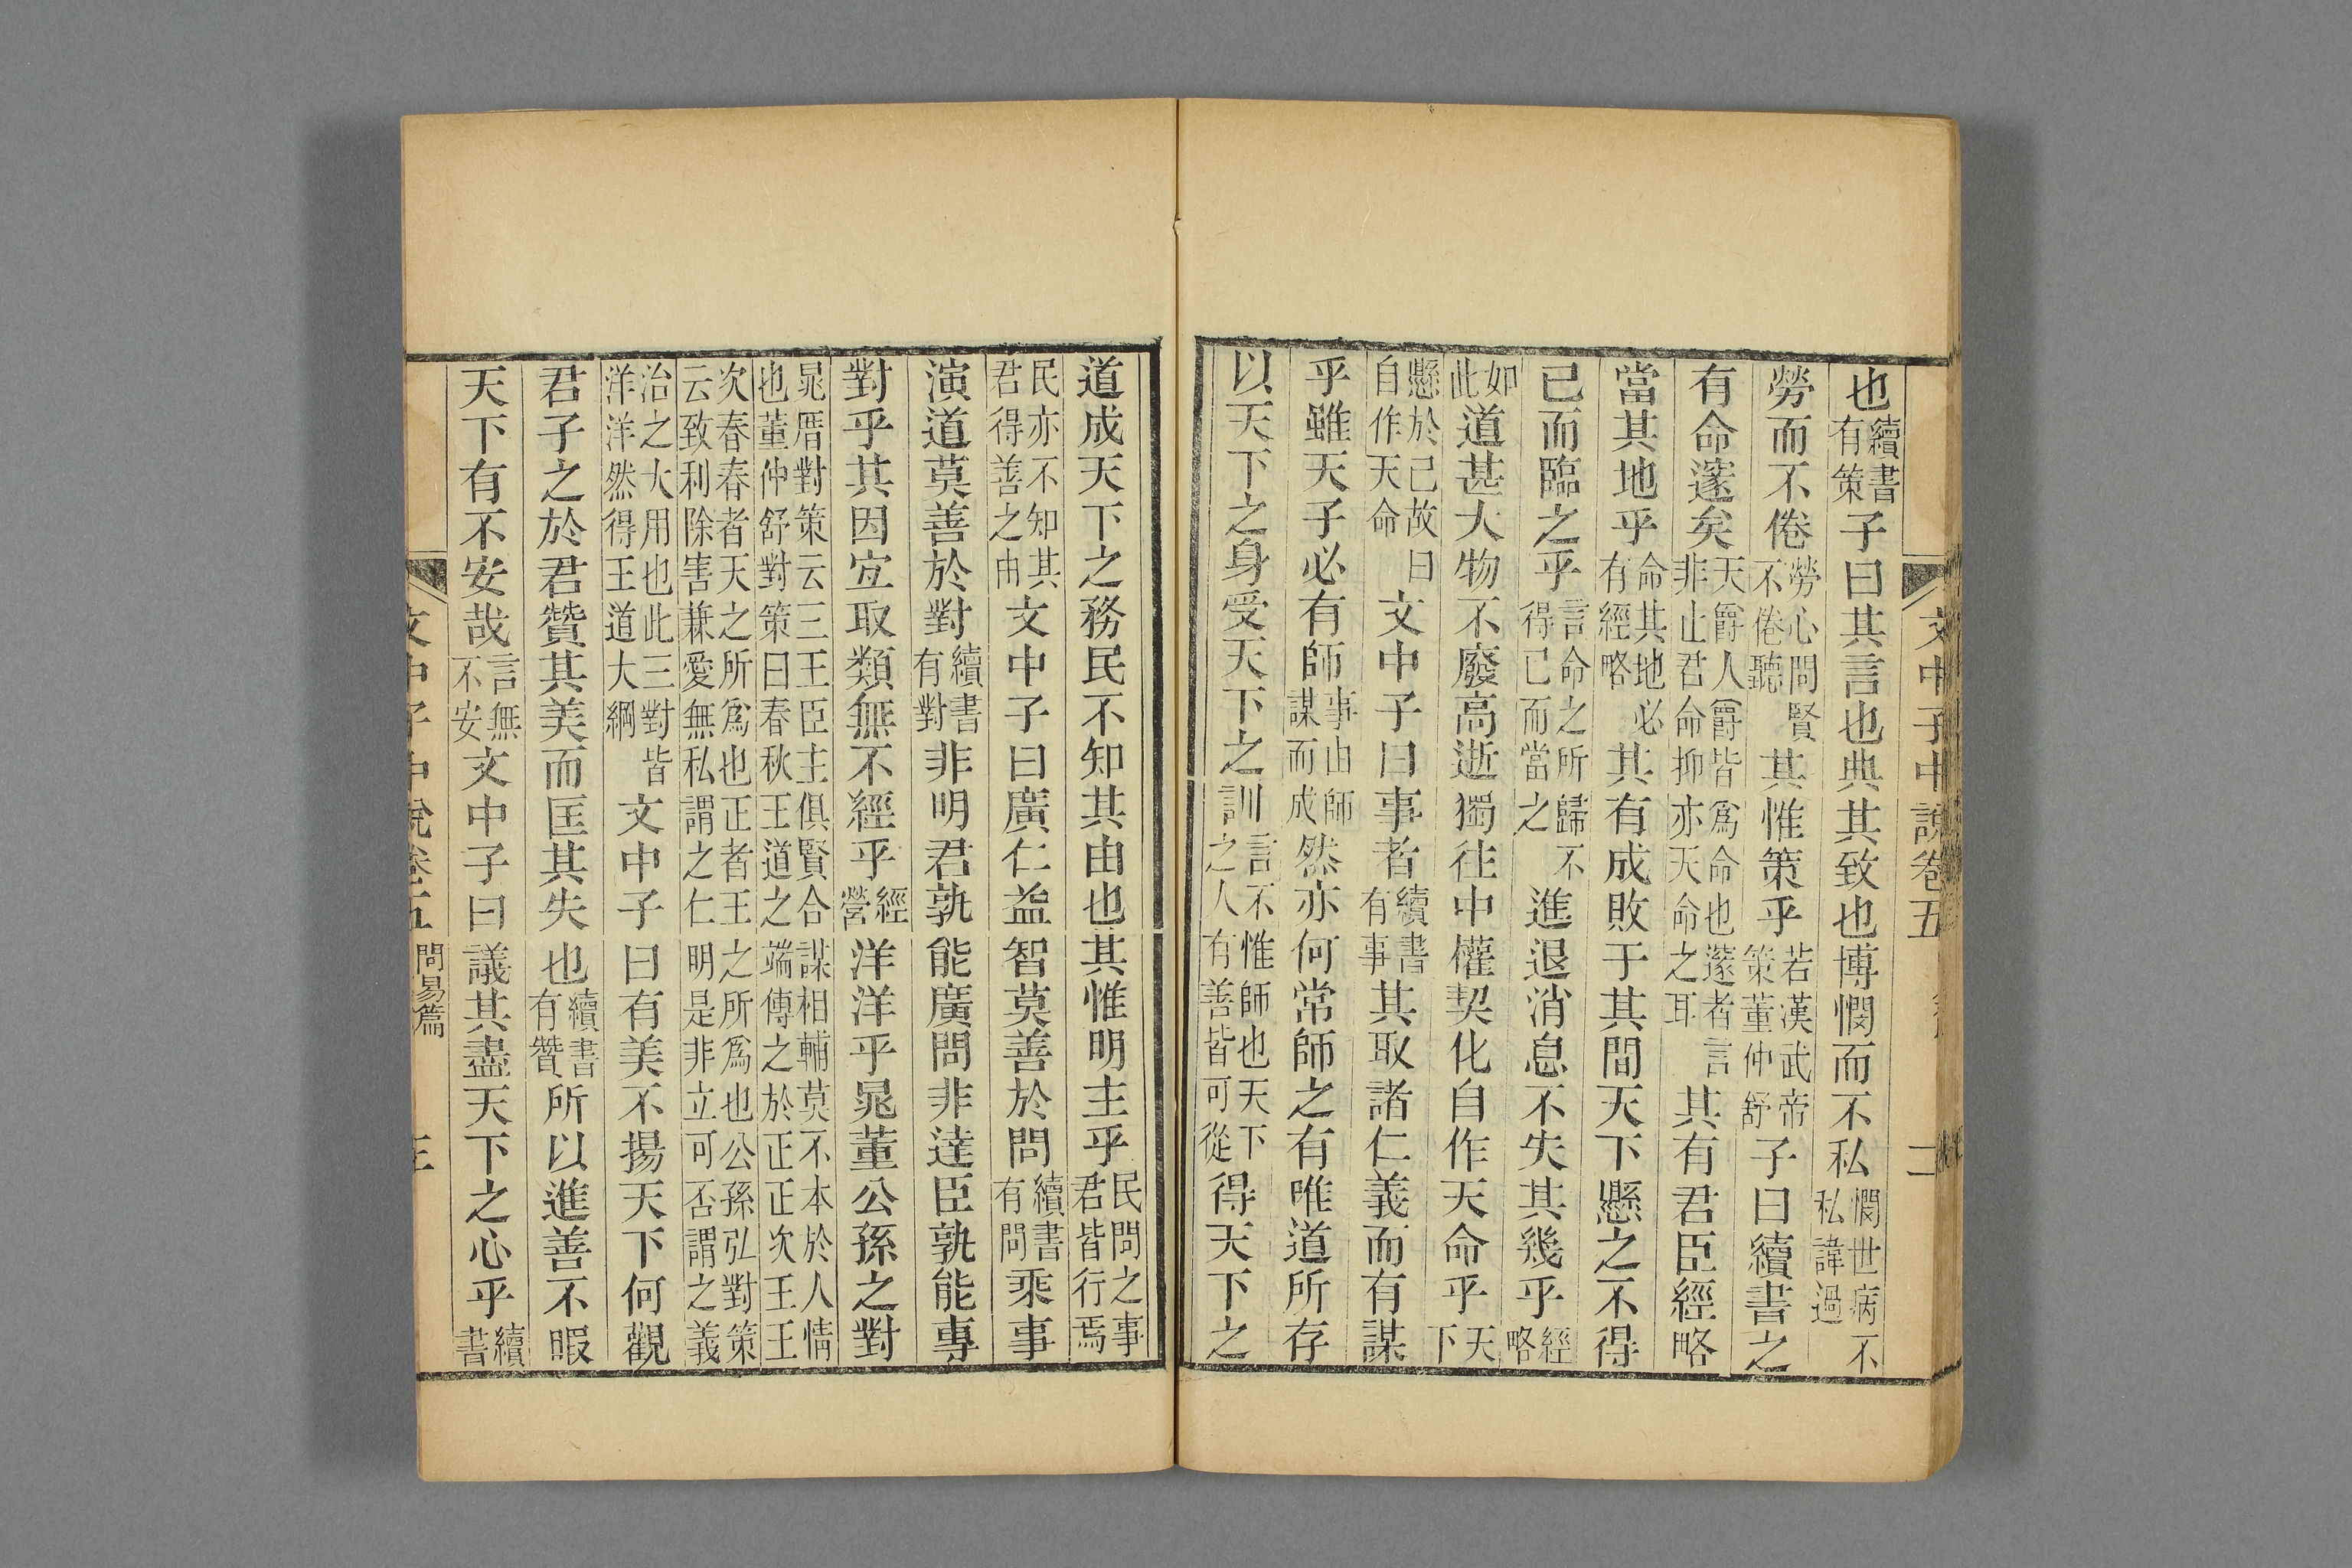 文中子中說卷五
二
也續書有策子曰其言也典其致也博憫而不私憫世病不私諱過
勞而不倦勞心問賢不倦聽其惟策乎若漢武帝策董仲舒子曰續書之
有命邃矣天爵人爵皆爲命也邃者言非止君命抑亦天命之耳其有君臣經略
當其地乎命其地必有經略其有成敗于其間天下懸之不得
已而臨之乎言命之所歸不得已而當之進退消息不失其幾乎經略
如此道甚大物不廢高逝獨往中權契化自作天命乎天下
懸於己故曰自作天命文中子曰事者續書有事其取諸仁義而有謀
乎雖天子必有師事由師謀而成然亦何常師之有唯道所存
以天下之身受天下之訓言不惟師也天下之人有善皆可從得天下之
道成天下之務民不知其由也其惟明主乎民問之事君皆行焉
民亦不知其君得善之由文中子曰廣仁益智莫善於問續書有問乘事
演道莫善於對續書有對非明君孰能廣問非達臣孰能專
對乎其因宜取類無不經乎經營洋洋乎晁董公孫之對
晁厝對策云三王臣主俱賢合謀相輔莫不本於人情也董仲舒對策曰春秋王道之端傳之於正正次王王
次春春者天之所爲也正者王之所爲也公孫弘對策云致利除害兼愛無私謂之仁明是非立可否謂之義
治之大用也此三對皆洋洋然得王道大綱文中子曰有美不揚天下何觀
君子之於君贊其美而匡其失也續書有贊所以進善不暇
天下有不安哉言無不安文中子曰議其盡天下之心乎續書
文中子中說卷五
問易篇
三